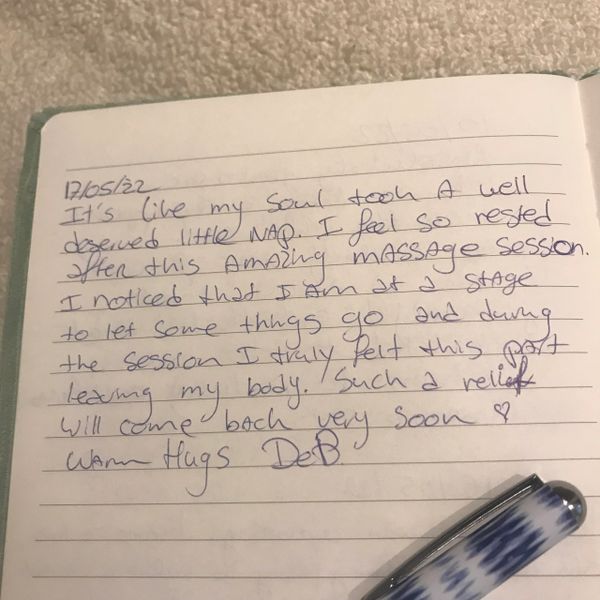 17/05/22
It's like my Soul took A well
deserved little NAP. I feel so rested
after this AMAZing MASSAGE Session.
I noticed that I Am at a StAge
to let some things go and during
the session I truly felt this part
leaving my body. Such a relief
will come back very soon ♡
WARM Hugs DeB